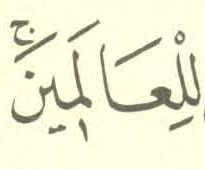 لِلْعَالَمِينَۚ